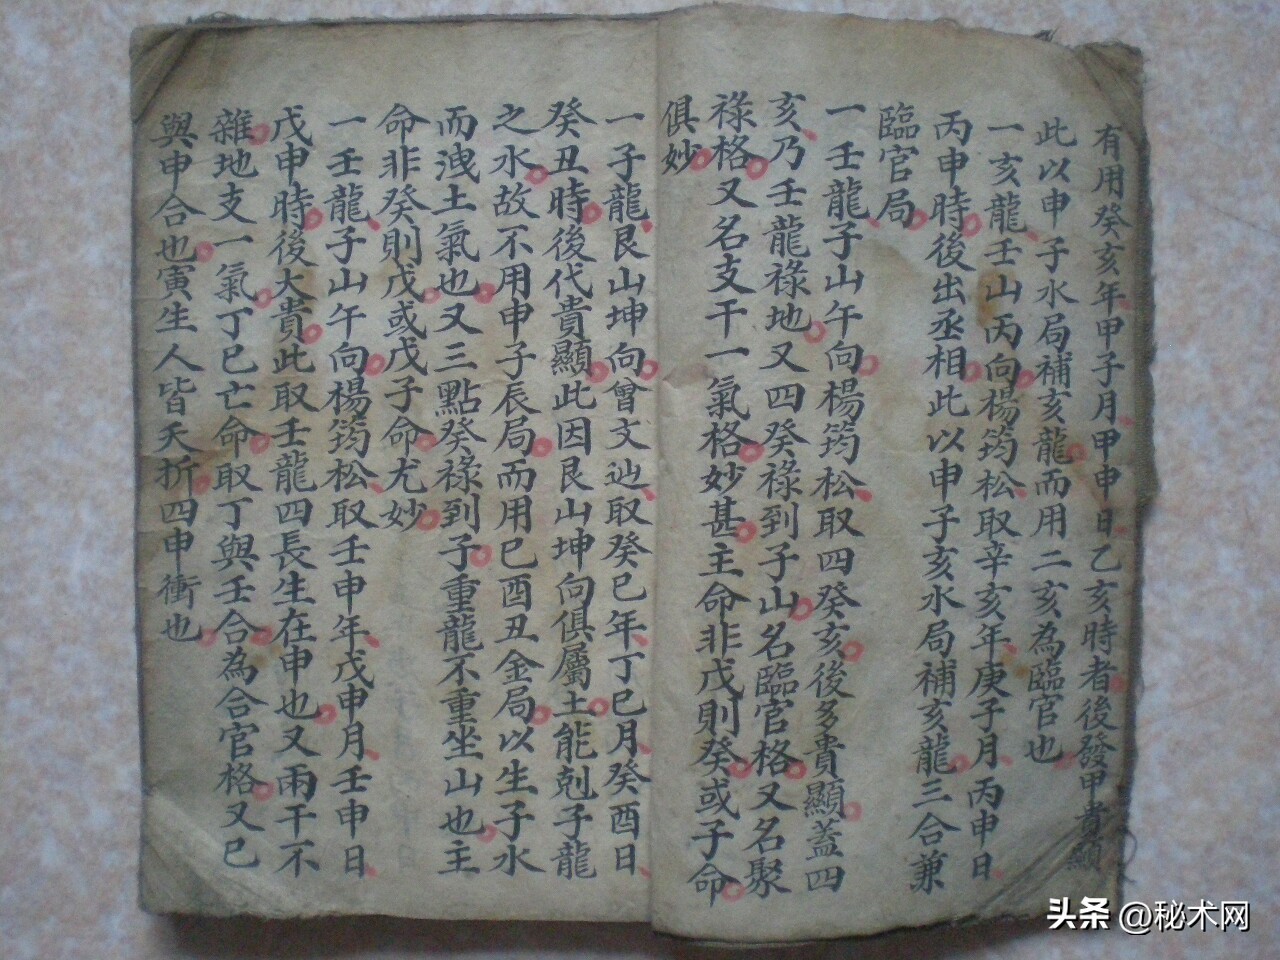 有用癸亥年甲子月甲申日乙亥時者後發甲貴顯
此以申子水局補亥龍而用二亥為臨官也
一亥龍壬山丙向楊筠松取辛亥年庚子月丙申日
丙申時後出丞相此以申子亥水局補亥龍三合兼
臨官局
一壬龍子山午向楊筠松取四癸亥後多貴顯蓋四
亥乃壬龍祿地又四癸祿到子山名臨官格又名聚
祿格又名支干一氣格妙甚主命非戊則癸或子命
俱妙
一子龍艮山坤向曾文辿取癸巳年丁巳月癸酉日
癸丑時後代貴顯此因艮山坤向俱屬土能剋子龍
之水故不用申子辰局而用巳酉丑金局以生子水
而洩土氣也又三點癸祿到子重龍不重坐山也主
命非癸則戊或戊子命尤妙
一壬龍子山午向楊筠松取壬申年戊申月壬申日
戊申時後大貴此取壬龍四長生在申也又兩干不
雜地支一氣丁巳亡命取丁與壬合為合官格又巳
與申合也寅生人皆夭折四申衝也
头条 @秘术网